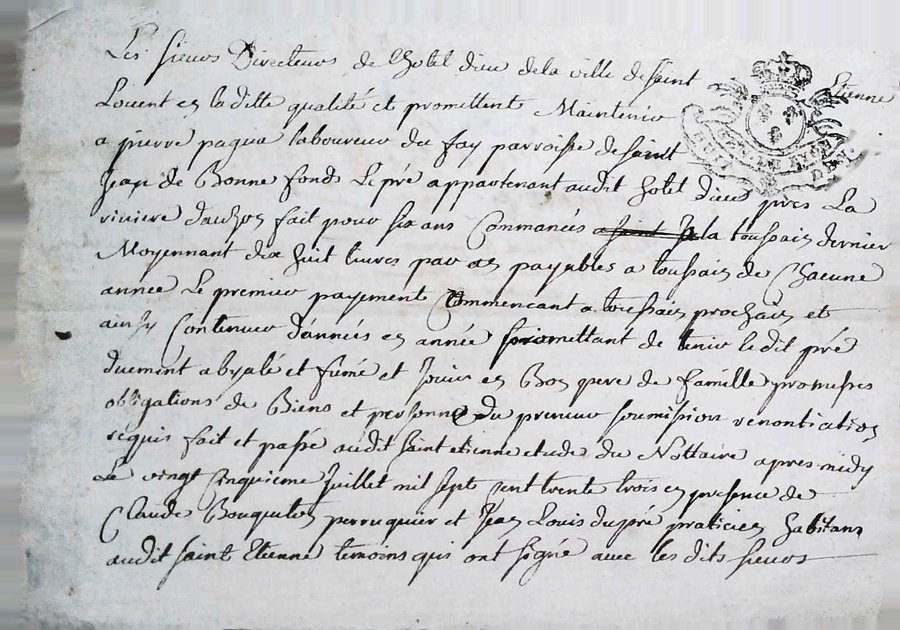 Les sieurs Directeurs de l'hotel dieu de la ville de saint Etienne
Louent en la ditte qualité et promettent Maintenir
a pierre pagua laboureur du fay parroisse de saint
Jean de Bonne fonds Le pré appartenant audit hotel dieu pres La
riviere d'auzon fait pour six ans Commancés a la toussain dernier
Moyennant dix huit livres par an payables a toussain de Chacune
année Le premier payement Commencant a toussain prochain et
ainsy Continuer d'année en année promettant de tenir le dit pré
duement abyalé et fumé et Jouir en Bon pere de famille promesses
obligations de Biens et personne du preneur soumission renontiation
requis fait et passé audit saint etienne etude du Nottaire apres midy
Le vingt Cinquieme Juillet mil sept cent trente trois en presence de
Claude perruquier et Jean Louis dupré praticien habitans
audit saint Etienne temoins qui ont signé avec les dits sieurs